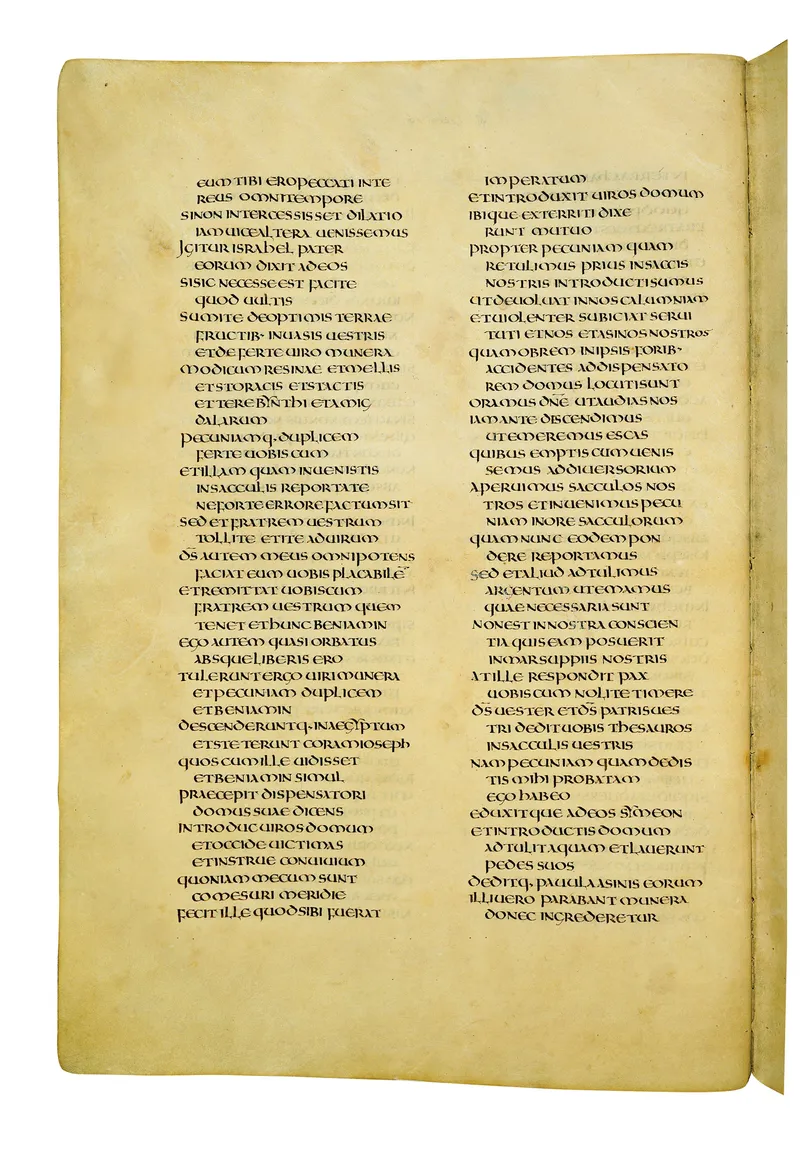 EUM TIBI ERO PECCATI INTE
REUS OMNI TEMPORE
SI NON INTERCESSISSET DILATIO
IAM UICE ALTERA UENISSEMUS
IGITUR ISRAHEL PATER
EORUM DIXIT AD EOS
SI SIC NECESSE EST FACITE
QUOD UULTIS
SUMITE DE OPTIMIS TERRAE
FRUCTIB· IN UASIS UESTRIS
ET DEFERTE UIRO MUNERA
MODICUM RESINAE ET MELLIS
ET STORACIS ET STACTIS
ET TEREBYNTHI ET AMIG
DALARUM
PECUNIAMQ· DUPLICEM
FERTE UOBISCUM
ET ILLAM QUAM INUENISTIS
IN SACCULIS REPORTATE
NE FORTE ERRORE FACTUM SIT
SED ET FRATREM UESTRUM
TOLLITE ET ITE AD UIRUM
D̄S AUTEM MEUS OMNIPOTENS
FACIAT EUM UOBIS PLACABILE¯
ET REMITTAT UOBISCUM
FRATREM UESTRUM QUEM
TENET ET HUNC BENIAMIN
EGO AUTEM QUASI ORBATUS
ABSQUE LIBERIS ERO
TULERUNT ERGO UIRI MUNERA
ET PECUNIAM DUPLICEM
ET BENIAMIN
DESCENDERUNTQ· IN AEGYPTUM
ET STETERUNT CORAM IOSEPH
QUOS CUM ILLE UIDISSET
ET BENIAMIN SIMUL
PRAECEPIT DISPENSATORI
DOMUS SUAE DICENS
INTRODUC UIROS DOMUM
ET OCCIDE UICTIMAS
ET INSTRUE CONUIUIUM
QUONIAM MECUM SUNT
COMESURI MERIDIE
FECIT ILLE QUOD SIBI FUERAT
IMPERATUM
ET INTRODUXIT UIROS DOMUM
IBIQUE EXTERRITI DIXE
RUNT MUTUO
PROPTER PECUNIAM QUAM
RETULIMUS PRIUS IN SACCIS
NOSTRIS INTRODUCTI SUMUS
UT DEUOLUAT IN NOS CALUMNIAM
ET UIOLENTER SUBICIAT SERUI
TUTI ET NOS ET ASINOS NOSTROS
QUAM OBREM IN IPSIS FORIB·
ACCIDENTES AD DISPENSATO
REM DOMUS LOCUTI SUNT
ORAMUS DN̄E UT AUDIAS NOS
IAM ANTE DISCENDIMUS
UT EMEREMUS ESCAS
QUIBUS EMPTIS CUM UENIS
SEMUS AD DIUERSORIUM
APERUIMUS SACCULOS NOS
TROS ET INUENIMUS PECU
NIAM IN ORE SACCULORUM
QUAM NUNC EODEM PON
DERE REPORTAMUS
SED ET ALIUD ADTULIMUS
ARGENTUM UT EMAMUS
QUAE NECESSARIA SUNT
NON EST IN NOSTRA CONSCIEN
TIA QUIS EAM POSUERIT
IN MARSUPPIIS NOSTRIS
AT ILLE RESPONDIT PAX
UOBISCUM NOLITE TIMERE
D̄S UESTER ET D̄S PATRIS UES
TRI DEDIT UOBIS THESAUROS
IN SACCULIS UESTRIS
NAM PECUNIAM QUAM DEDIS
TIS MIHI PROBATAM
EGO HABEO
EDUXITQUE AD EOS SYMEON
ET INTRODUCTIS DOMUM
ADTULIT AQUAM ET LAUERUNT
PEDES SUOS
DEDITQ· PAUULA ASINIS EORUM
ILLI UERO PARABANT MUNERA
DONEC INGREDERETUR